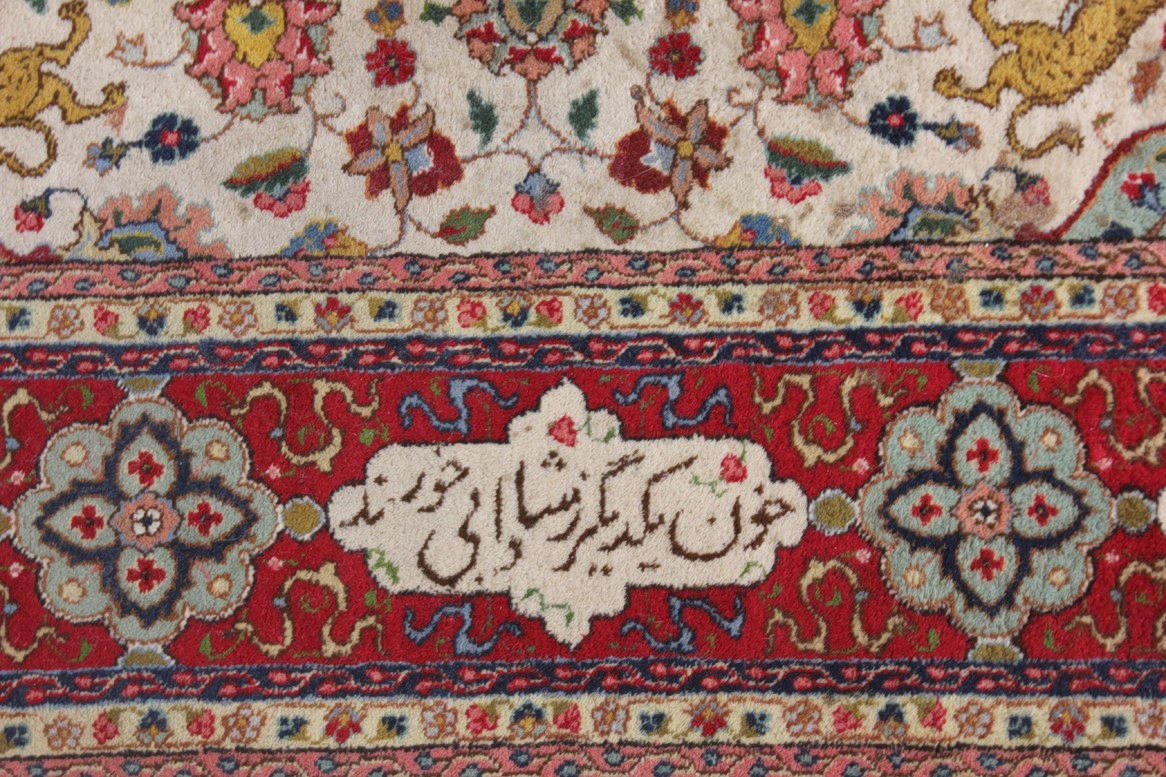 خون یکدیگر ز شادابی خورند